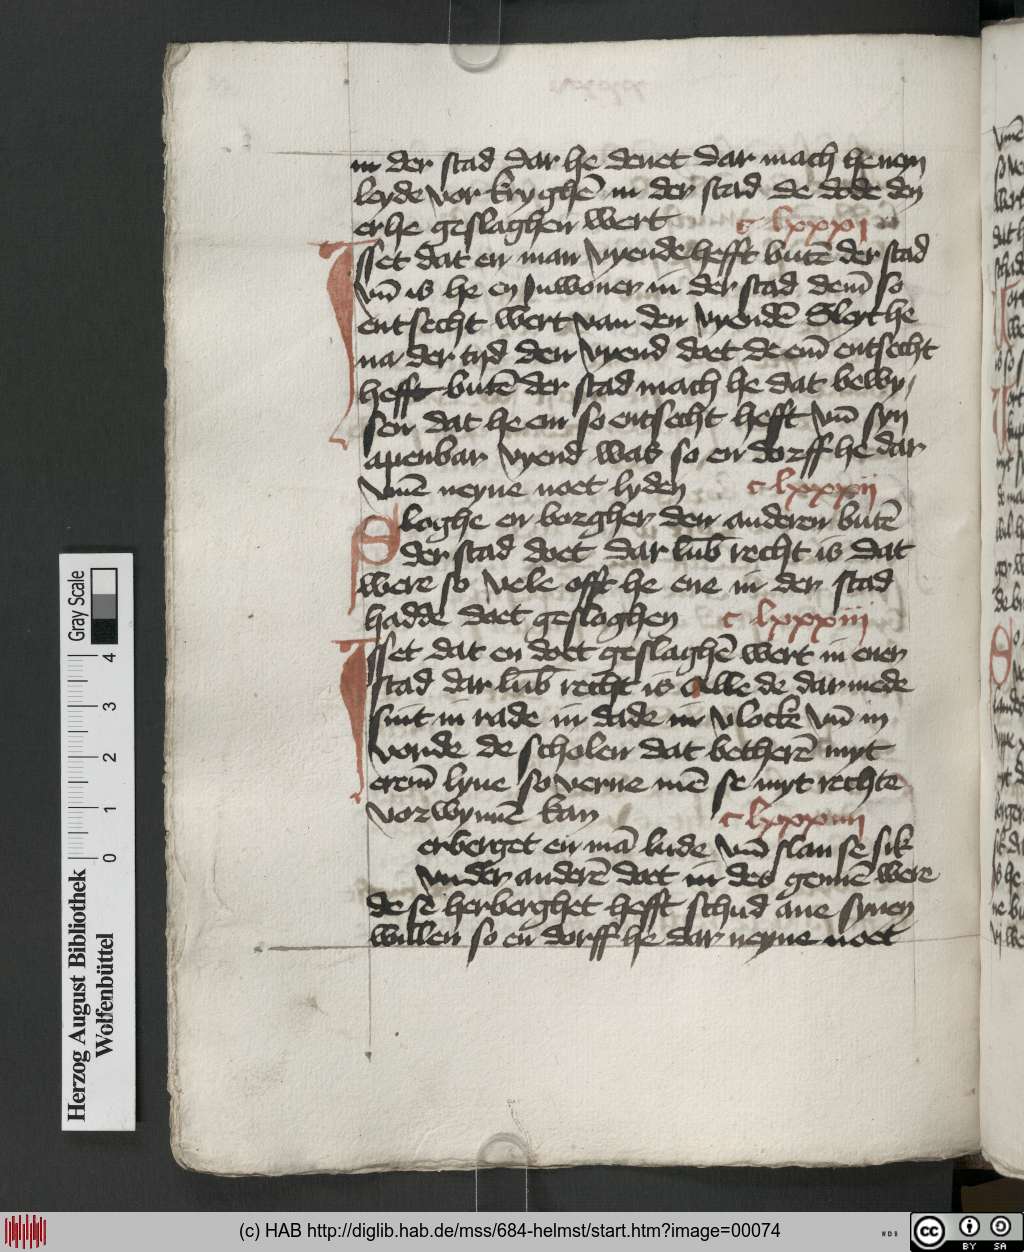 in der stad dar he denet dar mach he nem
leyde vor kryghē in der stad de dode den
er he geslaghen wert c lxxxi
Isset dat en man vyende hefft butē der stad
vn̄ is he en Inwoner in der stad dem̄ so
entsecht wert van den vyendē Sleyt he
na der tyd den vyend doet de em̄ entsecht
hefft butē der stad mach he dat bewy,
sen dat he em so entsecht hefft vn̄ syn
apenbar vyend was so en dorff he dar
vmē neyne noet lyden c lxxxii
Sloghe en borgher den anderen butē
der stad doet dar lub̄ recht is dat
were so vele offt he ene in der stad
hadde doet geslaghen c lxxxiii
Isset dat en doet geslaghē wert in ener
stad dar lub̄ recht is Alle de dar mede
sint in rade in dade in vlocke vn̄ in
vorde de scholen dat betherē myt
erem̄ lyue so verne mē se myt rechte
vorwynnē kan c lxxxiiii
erberget en mā lude vn̄ slan se sik
vnder anderē doet in des gennē were
de se herberghet hefft schud ane synen
willen so en dorff he dar neyne noet
Herzog August Bibliothek
Wolfenbüttel
Gray Scale
0 1 2 3 4
(c) HAB http://diglib.hab.de/mss/684-helmst/start.htm?image=00074
WDB
cc BY SA